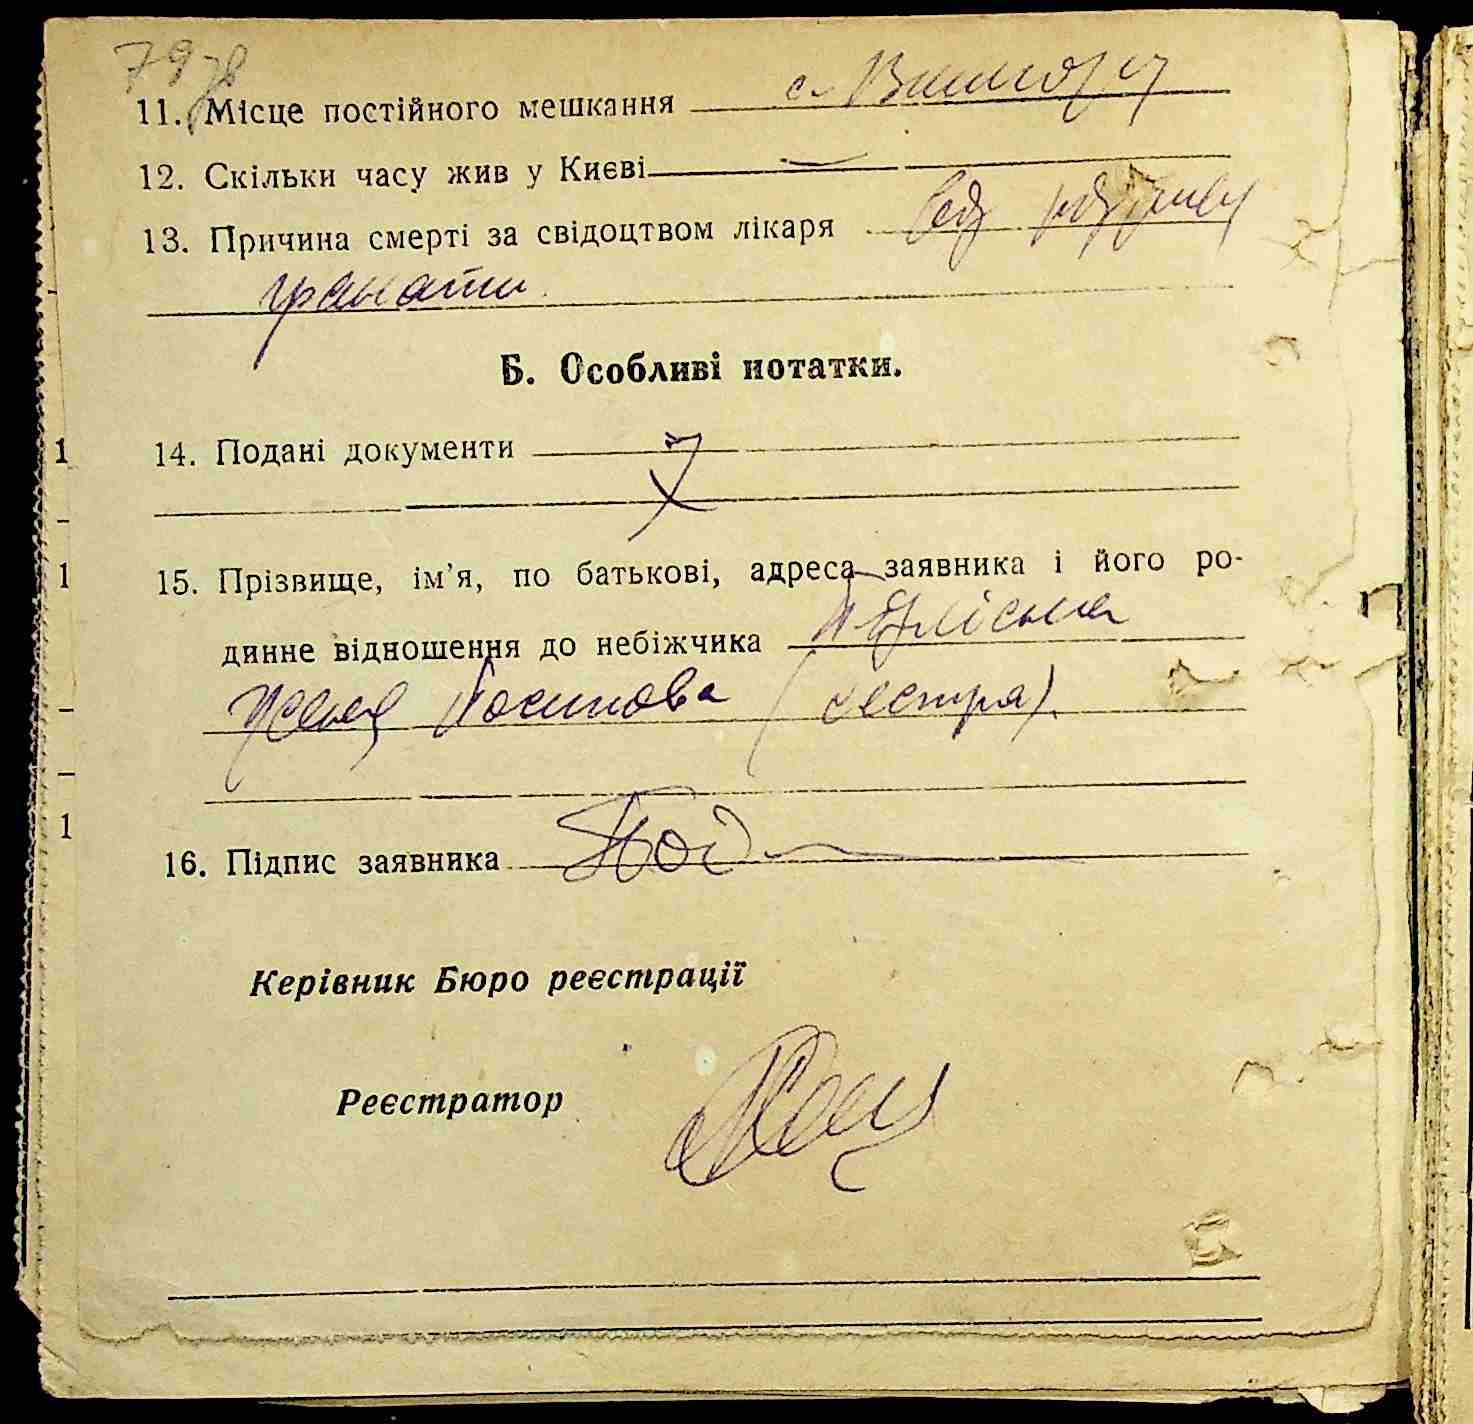 79
11. Місце постійного мешкання с.
12. Скільки часу жив у Києві —
13. Причина смерті за свідоцтвом лікаря від розриву
гранати
Б. Особливі нотатки.
1 14. Подані документи
1 15. Прізвище, ім'я, по батькові, адреса заявника і його ро-
динне відношення до небіжчика
Женя (сестра).
1
16. Підпис заявника
Керівник Бюро реєстрації
Реєстратор